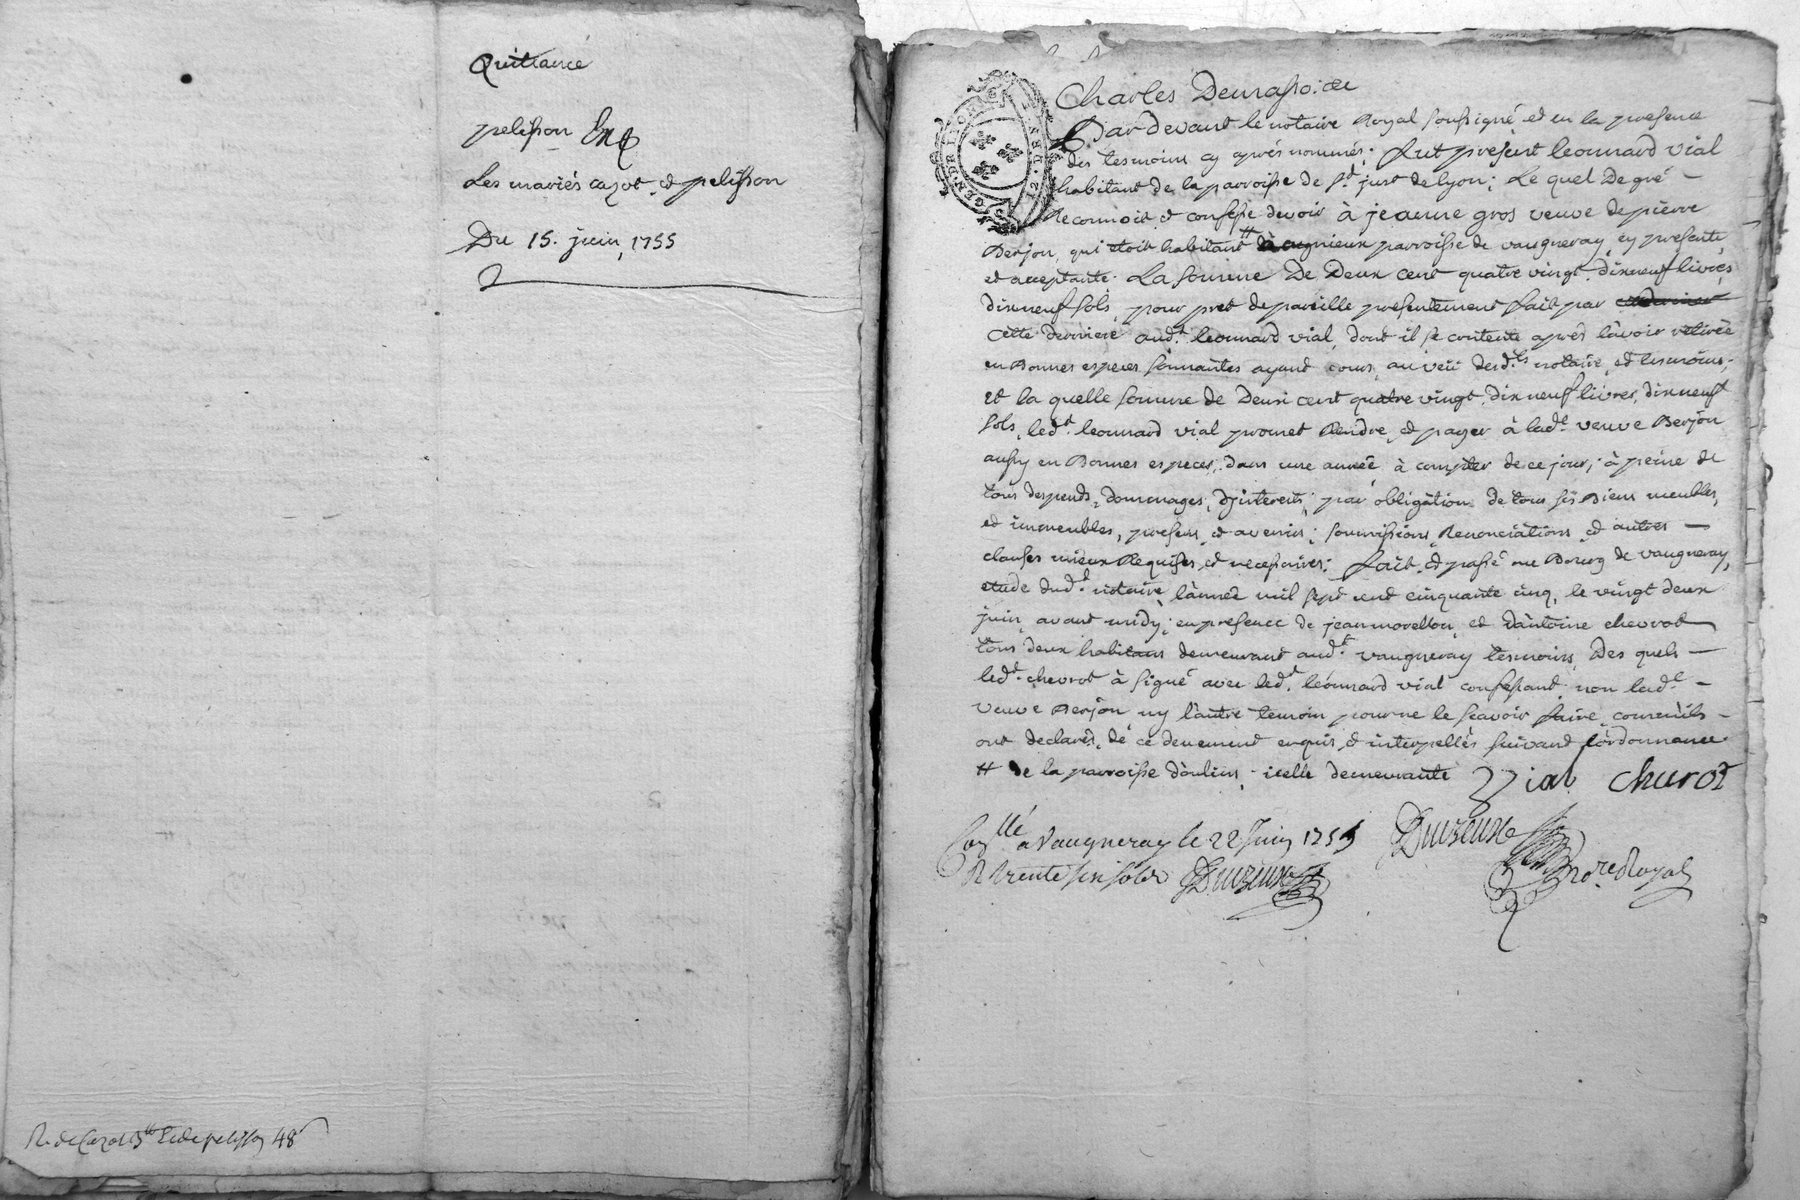 Quittance
pelisson
Les mariés cazot et pelisson
Du 15. juin, 1755
48
GEN. DE LYON
12. DEN
Charles
Pardevant le notaire Royal soussigné, et en la presence
des tesmoins cy aprés nommés; fut present leonnard vial
habitant de la parroisse de st. just de lyon; Le quel De gré –
Reconnoit et confesse devoir à jeanne gros veuve de pierre
Berjon, qui etoit habitant # parroisse de vaugneray, cy presente,
et acceptante. La somme De Deux cent quatre vingt dixneuf livres
dixneuf sols, pour pret de pareille presentement fait par
cette derniere aud.t leonnard vial, dont il se contente aprés l'avoir retirée
en Bonnes especes sonnantes ayant cours, au veü desd.ts notaire, et tesmoins;
et la quelle somme de Deux cent quatre vingt dixneuf livres, dixneuf
sols, led.t leonnard vial promet Rendre, et payer à lad.e veuve Berjon
aussy en Bonnes especes, dans une année à compter de ce jour; à peine de
tous despends, dommages, d'interests; par obligation de tous ses Biens meubles,
et immeubles, presens, et avenirs; soumissions, Renonciations, et autres –
clauses mieux Requises, et necessaires; fait, et passé au Bourg de vaugneray,
etude dud.t notaire, l'année mil sept cent cinquante cinq, le vingt deux
juin, avant midy; en presence de jean morellon, et d'antoine chevrot
tous deux habitans demeurant aud.t vaugneray tesmoins, Des quels –
led.t chevrot à signé avec led.t leonnard vial confessant, non lad.e –
veuve Berjon, ny l'autre temoin pour ne le scavoir faire, comme ils –
ont declarés, de ce deuement enquis, et interpellés suivant l'ordonnance.
# de la parroisse d'oulins, icelle demeurante Vial Chevrot
Con.llé a Vaugneray le 22 Juin 1755
R trente six sols
no.re Royal